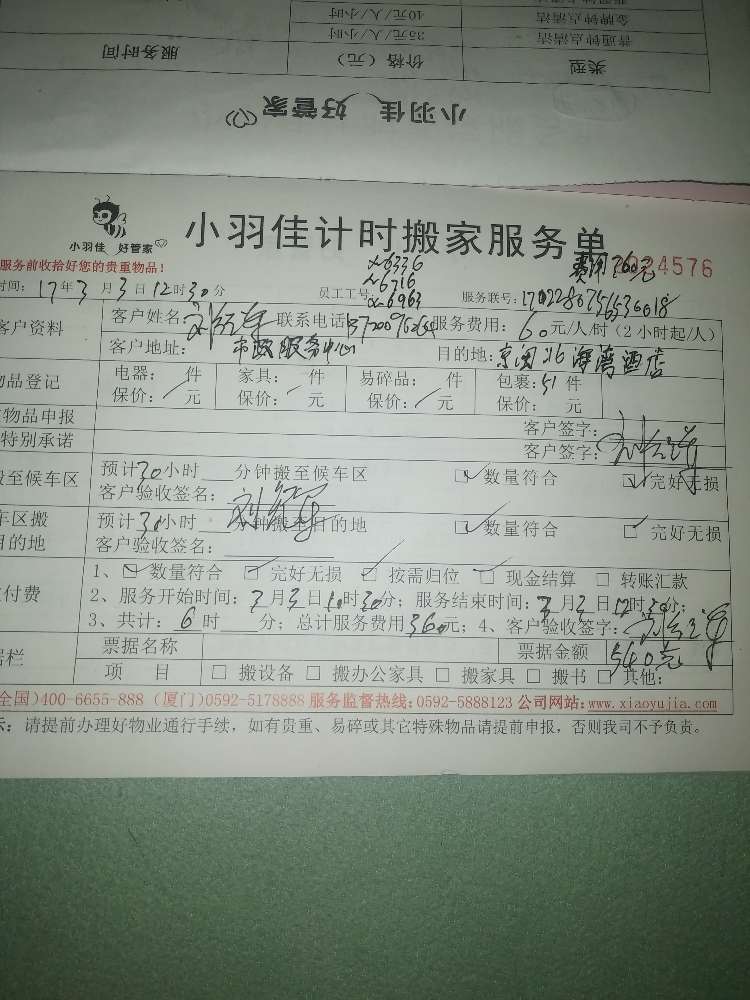 普通钟点清洁
金牌钟点清洁
35元/人/小时
40元/人/小时
类型
价格（元）
服务时间
小羽佳 好管家
小羽佳 好管家
小羽佳计时搬家服务单
服务前收拾好您的贵重物品！
费用360元
4576
时间：17年3月3日12时30分
员工工号：
6336
6716
6963
服务联号：
客户资料
客户姓名：
联系电话
服务费用：60元/人/时（2小时起/人）
客户地址：市政服务中心
目的地：京闽北海湾酒店
品登记
电器： 件
家具： 件
易碎品： 件
包裹：51件
保价： 元
保价： 元
保价： 元
保价： 元
物品申报
客户签字：
特别承诺
客户签字：
至候车区
预计30小时 分钟搬至候车区
数量符合
完好无损
客户验收签名：
车区搬
目的地
预计30小时 分钟搬至目的地
数量符合
完好无损
客户验收签名：
付费
1、 数量符合 完好无损 按需归位 现金结算 转账汇款
2、服务开始时间：3月3日10时30分；服务结束时间：3月3日12时30分；
3、共计：6时 分；总计服务费用360元；4、客户验收签字：
栏
票据名称
票据金额
540元
项 目
搬设备 搬办公家具 搬家具 搬书 其他：
全国)400-6655-888 (厦门)0592-5178888 服务监督热线：0592-5888123 公司网站：www.xiaoyujia.com
示：请提前办理好物业通行手续，如有贵重、易碎或其它特殊物品请提前申报，否则我司不予负责。